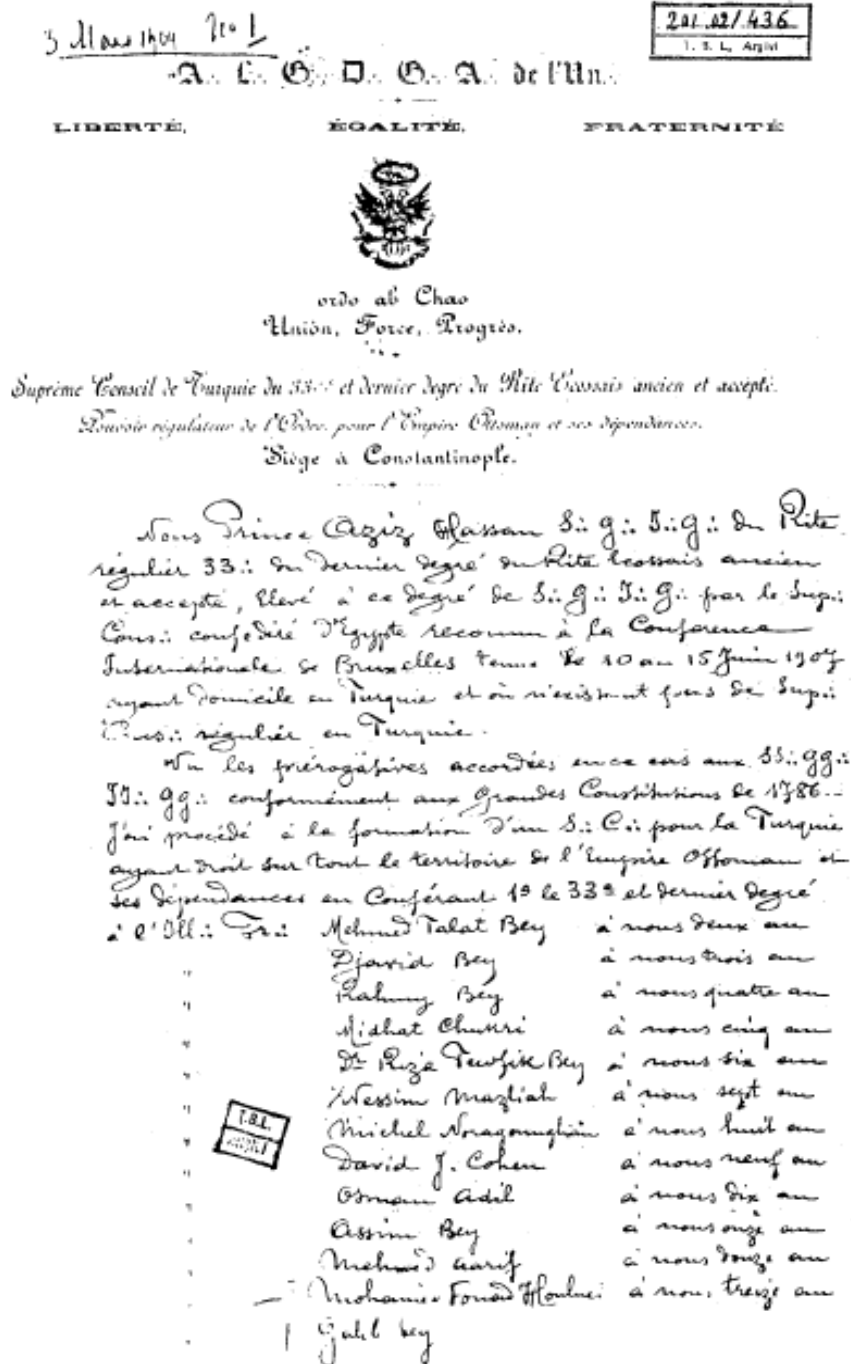 3 Mars 1909 No 1
201.02/436
T. B. L. Arşivi
A∴ L∴ G∴ D∴ G∴ A∴ de l'Un∴
LIBERTÉ, ÉGALITÉ, FRATERNITÉ
ordo ab Chao
Union, Force, Progrès.
Suprême Conseil de Turquie du 33∴ et dernier degré du Rite Ecossais ancien et accepté.
Pouvoir régulateur de l'Ordre pour l'Empire Ottoman et ses dépendances.
Siège à Constantinople.
Nous Prince Aziz Hassan S∴ G∴ I∴ G∴ du Rite
régulier 33∴ du dernier degré du Rite Ecossais ancien
et accepté, Elevé à ce degré de S∴ G∴ I∴ G∴ par le Sup∴
Cons∴ confédéré d'Egypte reconnu à la Conférence
Internationale de Bruxelles tenue le 10 au 15 Juin 1907
ayant domicile en Turquie et où n'existant pas de Sup∴
Cons∴ régulier en Turquie.
Vu les prérogatives accordées en ce cas aux SS∴ GG∴
II∴ GG∴ conformément aux Grandes Constitutions de 1786
J'ai procédé à la formation d'un S∴ C∴ pour la Turquie
ayant droit sur tout le territoire de l'Empire Ottoman et
ses dépendances en Conférant 1º le 33e et dernier degré
à l'Ill∴ Fr∴ Mehmed Talat Bey à nous deux au
" Djavid Bey à nous trois au
" Rahmy Bey à nous quatre au
" Midhat Chukri à nous cinq au
" Dr Riza Tewfik Bey à nous six au
" Nessim Mazliah à nous sept au
" Michel Noragounghian à nous huit au
" David J. Cohen à nous neuf au
" Osman Adil à nous dix au
" Assim Bey à nous onze au
" Mehmed Aarif à nous douze au
Fouad à nous treize au
bey
T.B.L.